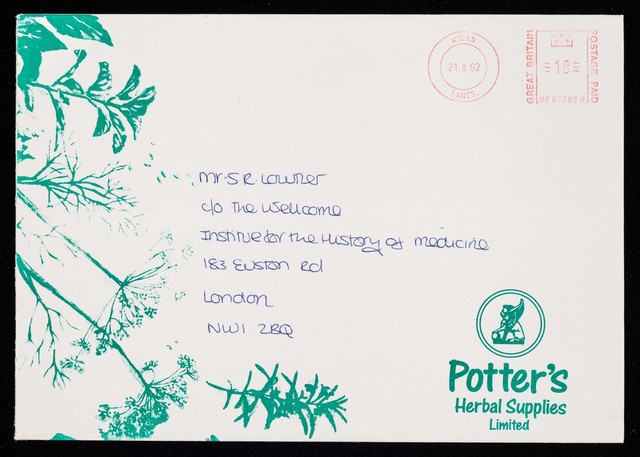 WIGAN
21.II.92
LANCS.
GREAT BRITAIN
=18=
POSTAGE PAID
Mr S R Lowner
c/o The Wellcome
Institue for the History of medicine
183 Euston Rd
London
NW1 2BQ
Potter's
Herbal Supplies
Limited